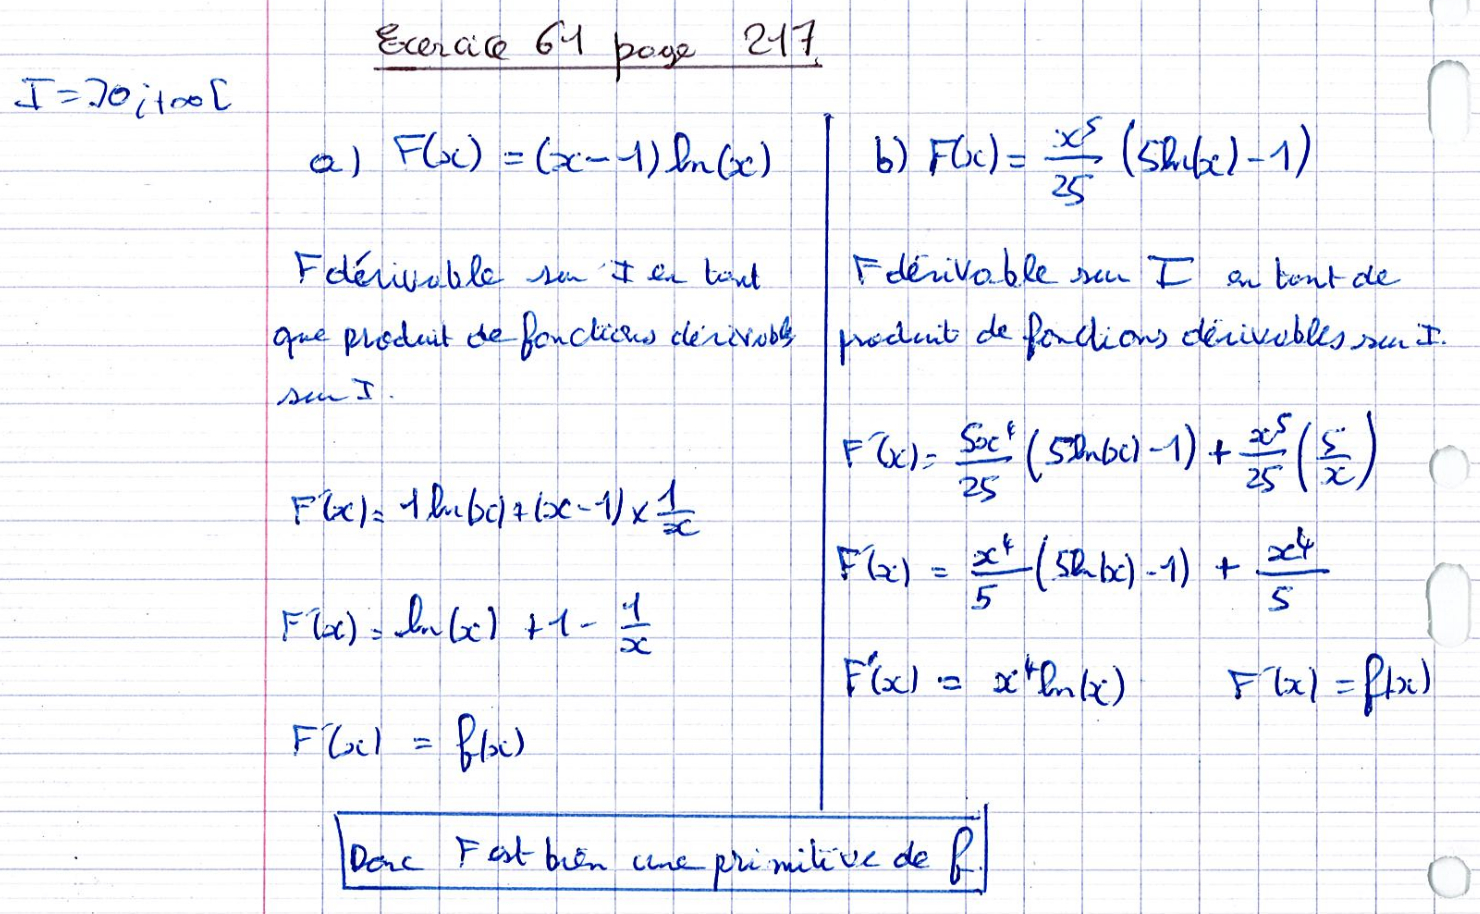 Exercice 61 page 217
I = ]0;+∞[
a) F(x) = (x-1) ln(x)
F dérivable sur I en tant
que produit de fonctions dérivables
sur I.
F'(x) = 1 ln(x) + (x-1) × 1/x
F'(x) = ln(x) + 1 - 1/x
F'(x) = f(x)
b) F(x) = x⁵/25 (5ln(x) - 1)
F dérivable sur I en tant de
produit de fonctions dérivables sur I.
F'(x) = 5x⁴/25 (5ln(x) - 1) + x⁵/25 (5/x)
F'(x) = x⁴/5 (5ln(x) - 1) + x⁴/5
F'(x) = x⁴ln(x) F'(x) = f(x)
Donc F est bien une primitive de f.